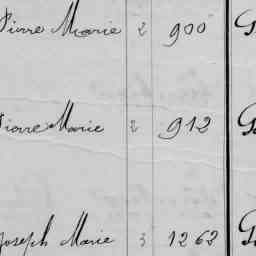 Pierre Marie 2 900
Pierre Marie 2 912
Joseph Marie 3 1262